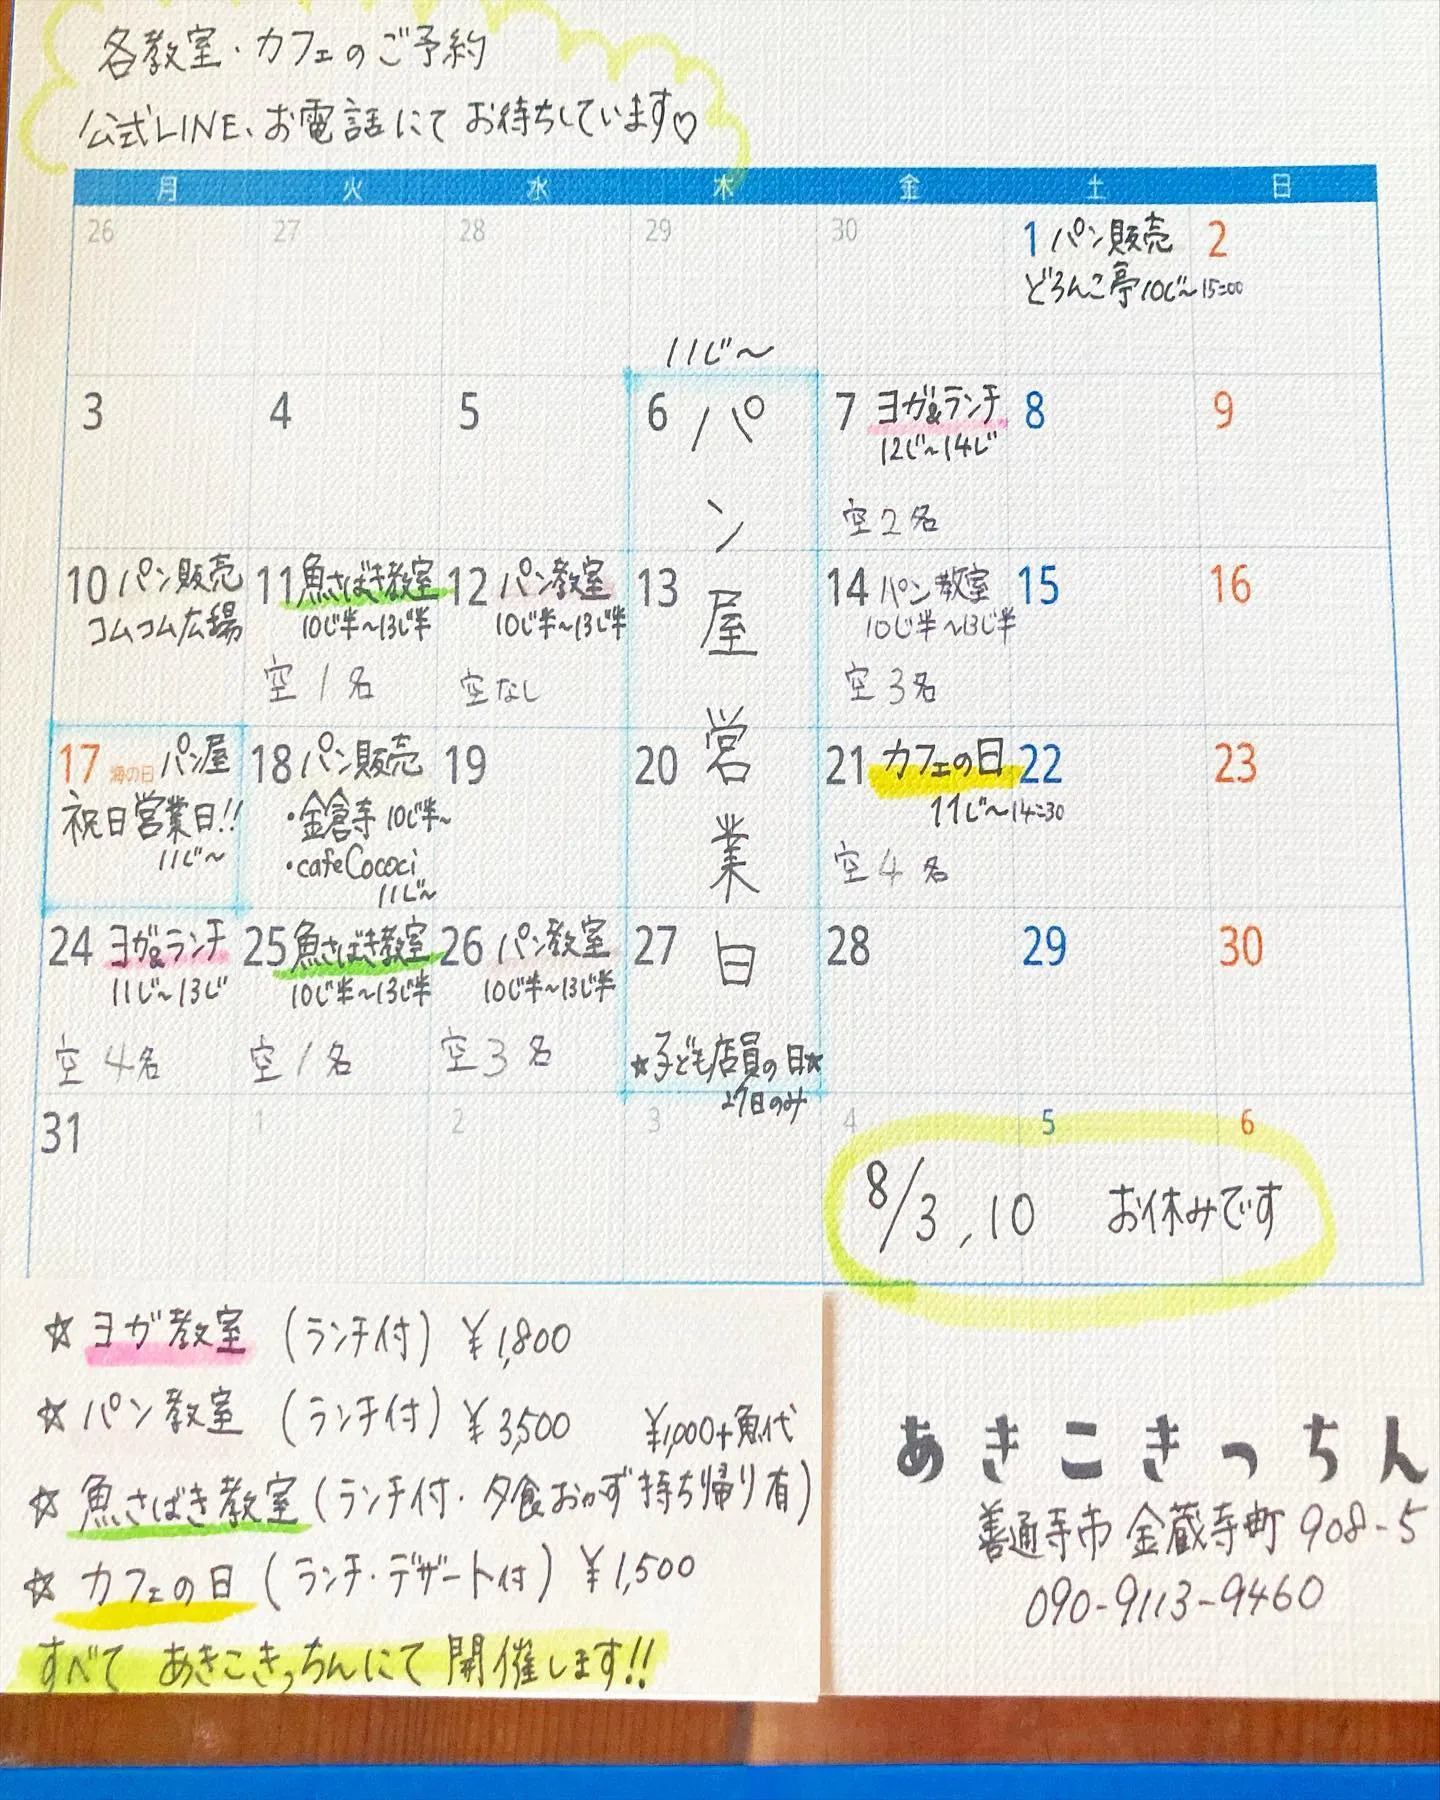 各教室・カフェのご予約
公式LINE、お電話にてお待ちしています♡
月 火 水 木 金 土 日
26 27 28 29 30 1 2
パン販売
どろんこ亭10じ～15:00
11じ～
パン屋営業日
3 4 5 6 7 8 9
ヨガ&ランチ
12じ～14じ
空2名
10 11 12 13 14 15 16
パン販売
コムコム広場
魚さばき教室
10じ半～13じ半
空1名
パン教室
10じ半～13じ半
空なし
パン教室
10じ半～13じ半
空3名
17 18 19 20 21 22 23
海の日
パン屋
祝日営業日!!
11じ～
パン販売
・金倉寺 10じ半～
・cafeCococi
11じ～
カフェの日
11じ～14:30
空4名
24 25 26 27 28 29 30
ヨガ&ランチ
11じ～13じ
空4名
魚さばき教室
10じ半～13じ半
空1名
パン教室
10じ半～13じ半
空3名
★子ども店員の日★
27日のみ
31 1 2 3 4 5 6
8/3,10 お休みです
☆ヨガ教室（ランチ付）¥1,800
☆パン教室（ランチ付）¥3,500
¥1,000+魚代
☆魚さばき教室（ランチ付・夕食おかず持ち帰り有）
☆カフェの日（ランチ・デザート付）¥1,500
すべて あきこきっちんにて 開催します!!
あきこきっちん
善通寺市 金蔵寺町 908-5
090-9113-9460